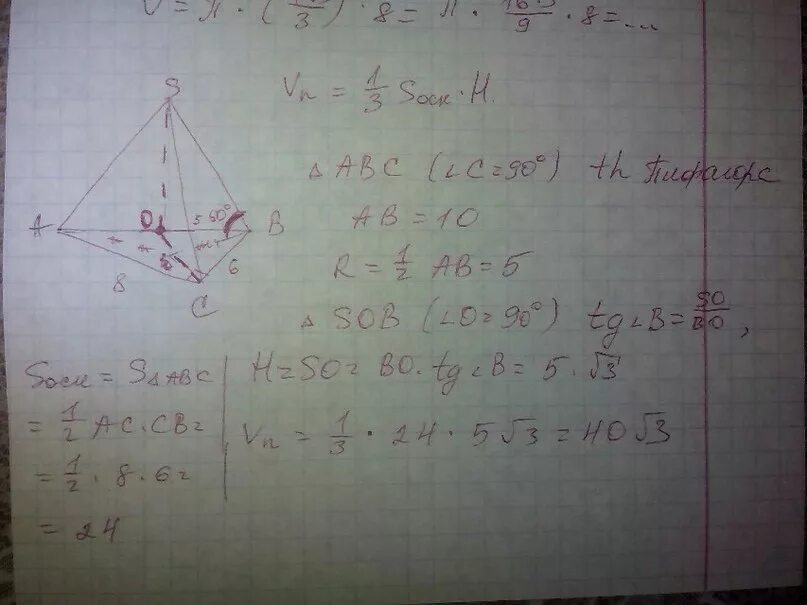 V = π · ( /3) · 8 = π · 16·3/9 · 8 = ...
Vп = 1/3 Sосн · H.
S
A
O
5
60°
B
8
5
6
C
△ ABC (∠C = 90°) th Пифагора
AB = 10
R = 1/2 AB = 5
△ SOB (∠O = 90°) tg∠B = SO/BO,
Sосн = S△ABC
= 1/2 AC · CB =
= 1/2 · 8 · 6 =
= 24
H = SO = BO · tg∠B = 5 · √3
Vп = 1/3 · 24 · 5√3 = 40√3